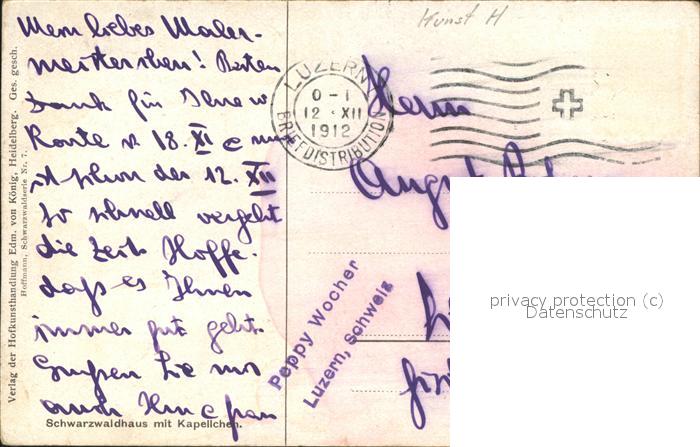 Mein liebes Maler-
meisterchen! Besten
Dank für Ihre w
Karte v. 18. XI
ist schon der 12. XII
So schnell vergeht
die Zeit. Hoffe.
daß es Ihnen
immer gut geht.
Grüßen Sie mir
auch Ihre Frau
Schwarzwaldhaus mit Kapellchen.
Verlag der Hofkunsthandlung Edm. von König, Heidelberg. Ges. gesch.
Hoffmann, Schwarzwaldserie Nr. 7.
Kunst H
LUZERN
0-1
12 · XII
1912
BRIEFDISTRIBUTION
Herrn
August
Peppy Wocher
Luzern, Schweiz
privacy protection (c)
Datenschutz